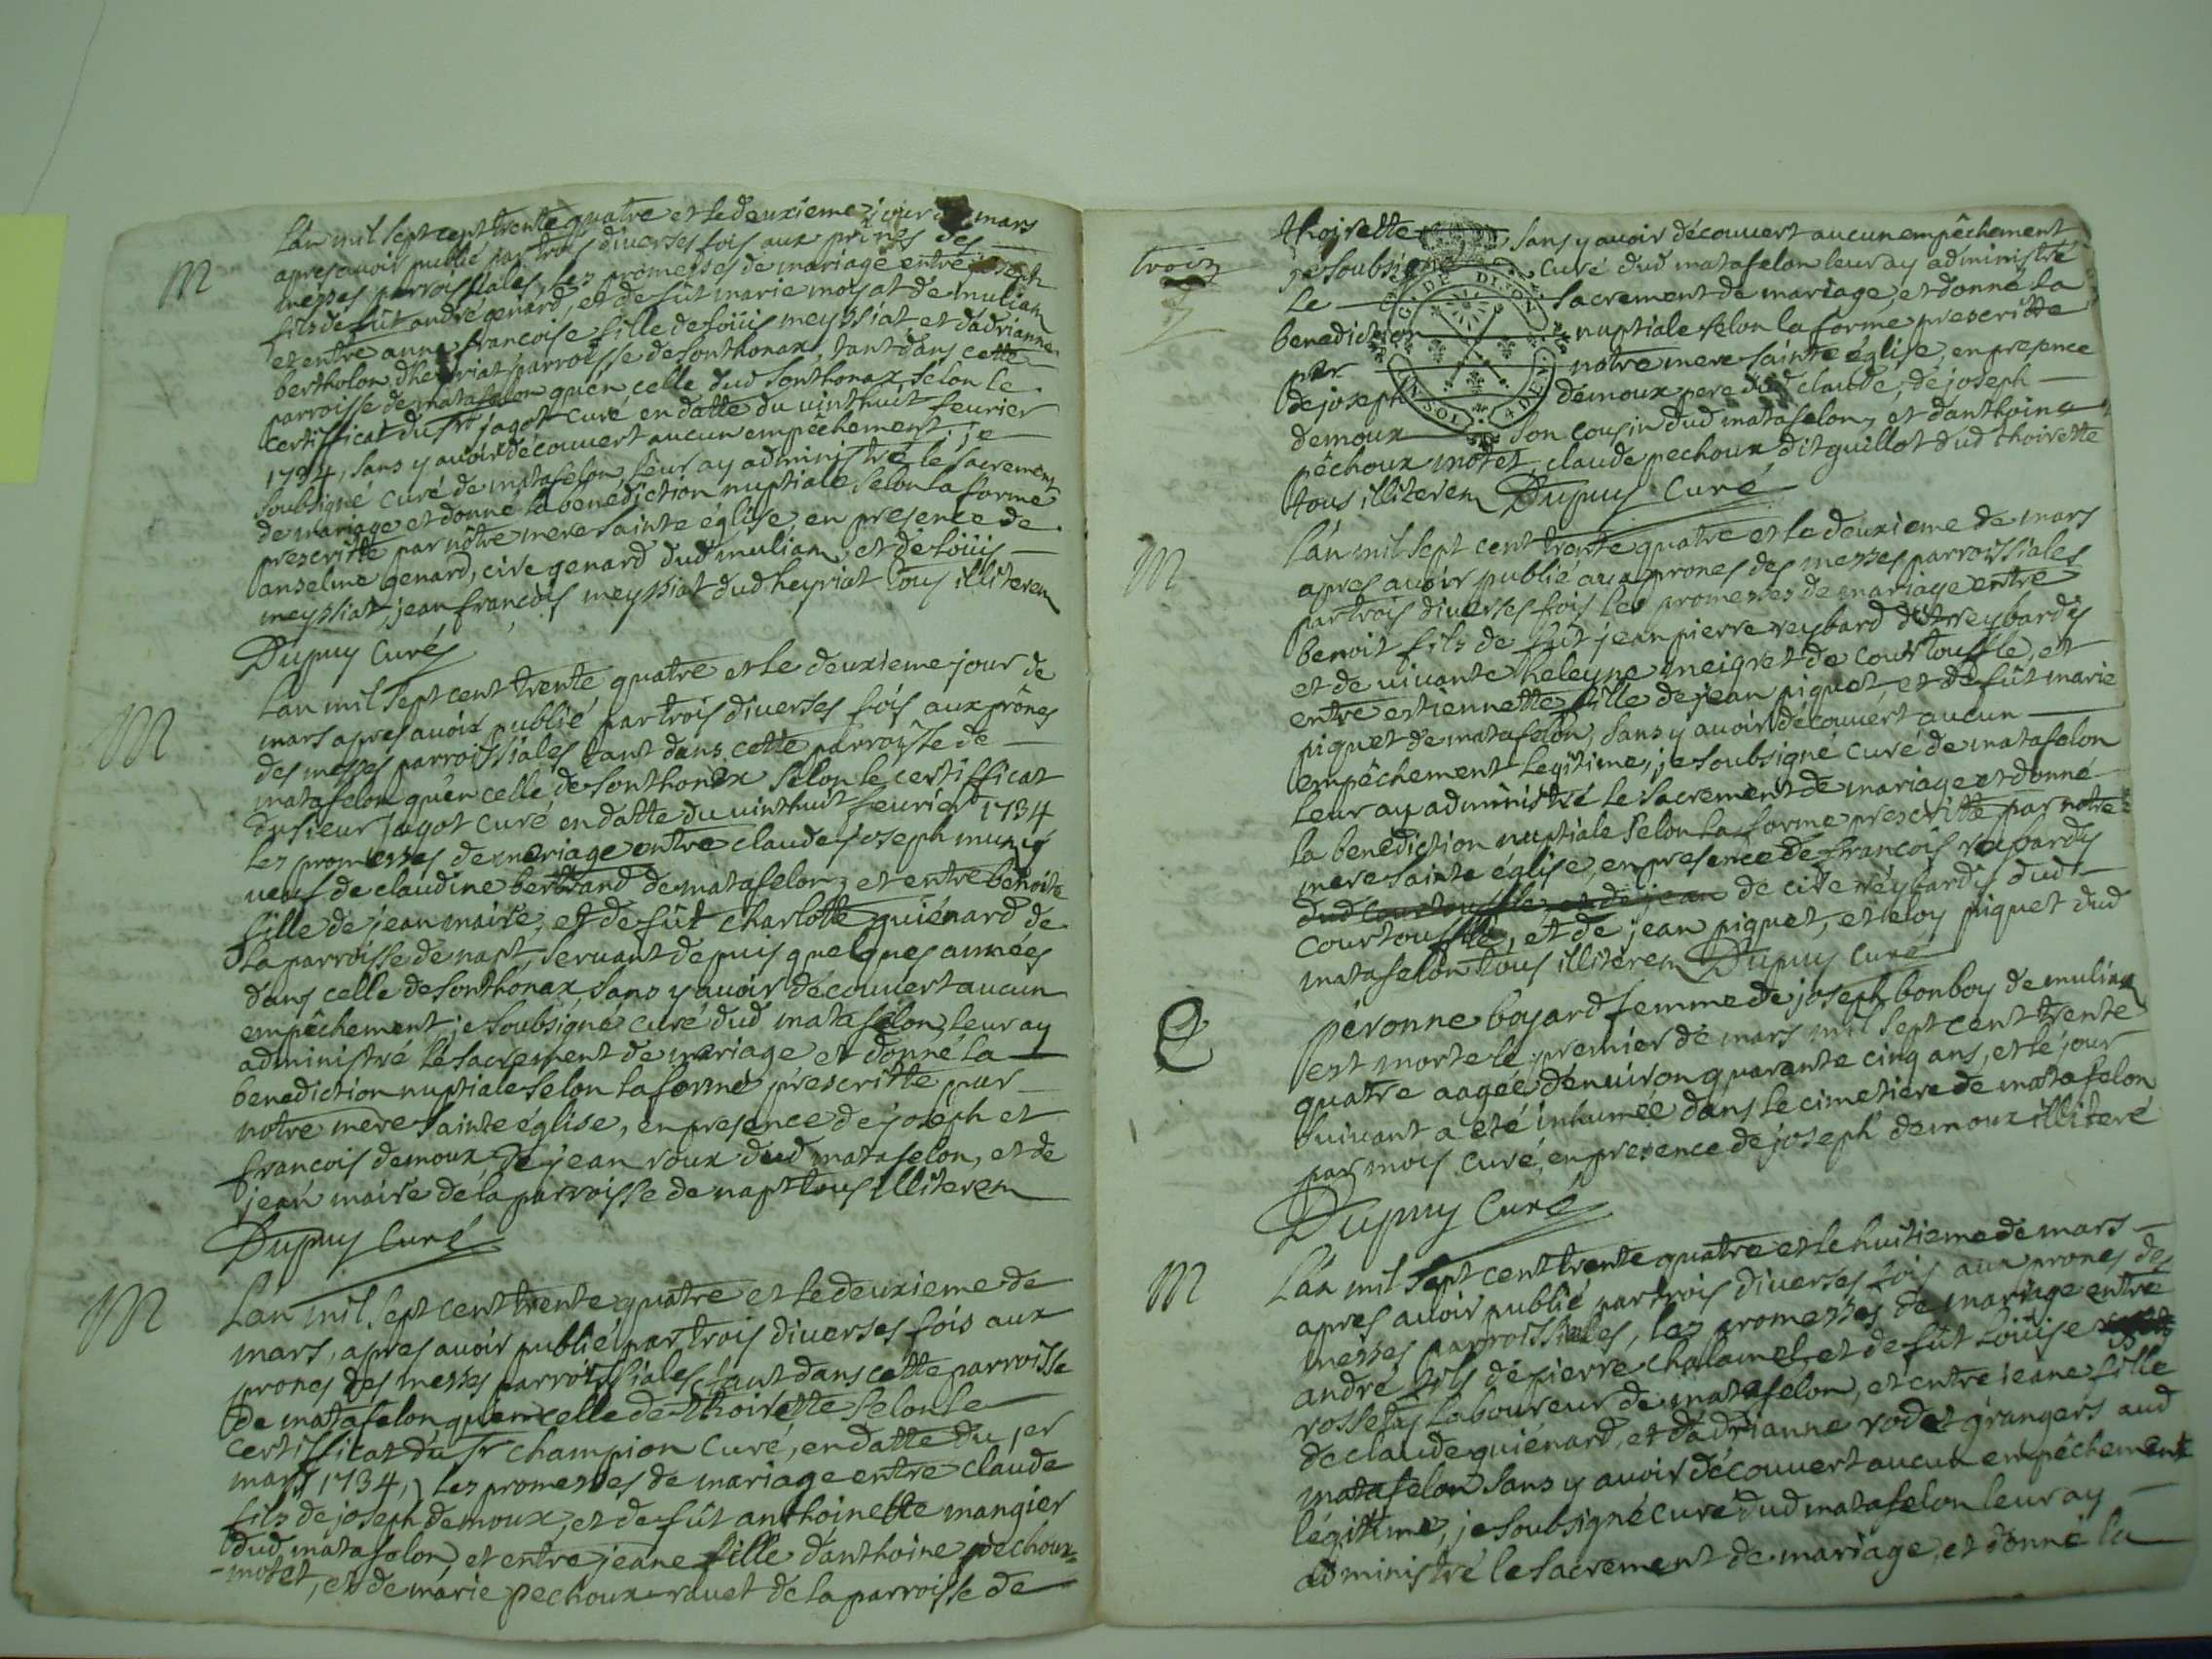 M
Lán mil sept cent trente quatre et le deuxieme jour mars
apres avoir publié par trois diverses fois aux prônes des
messes parroissiales, les promesses de mariage entre joseph
fils de fût andré genard, et de fût marie moysat de mulian
et entre anne francoise fille de loüis meyssiat, et dadrianne
bertholon dheyriat parroisse de sonthonax, tant dans cette
parroisse de matafelon quen celle dud sonthonax selon le
certifficat du sr jagot curé en datte du vinthuit feurier
1734, sans y avoir découvert aucun empêchement, je
soubsigné curé de matafelon leur ay administré le sacrement
de mariage et donné la benediction nuptiale selon la forme
prescritte par nôtre mere sainte église, en presence de
anselme genard, cire genard dud mulian, et de loüis
meyssiat, jean françois meyssiat dud heyriat tous illiterez
Dupuy Curé
M
Lan mil sept cent trente quatre et le deuxieme jour de
mars apres avoir publié par trois diverses fois aux prônes
des messes parroissiales tant dans cette parroisse de
matafelon quen celle de sonthonax selon le certifficat
du sieur jagot curé en datte du vinthuit feurier 1734
les promesses de mariage entre claude joseph
veuf de claudine bertrand de matafelon, et entre benoite
fille de jean maire, et de fût charlotte guiénard de
la parroisse de napt, servant depuis quelques années
dans celle de sonthonax, sans y avoir découvert aucun
empêchement, je soubsigné curé dud matafelon leur ay
administré le sacrement de mariage et donné la
benediction nuptiale selon la forme prescritte par
notre mere sainte église, en presence de joseph et
francois demoux de jean roux dud matafelon, et de
jean maire de la parroisse de napt tous illiterez
Dupuy Curé
M
Lan mil sept cent trente quatre et le deuxieme de
mars, apres avoir publié par trois diverses fois aux
prones des messes parroissiales tant dans cette parroisse
de matafelon quen celle de thoirette selon le
certifficat du sr champion curé, en datte du 1er
mars 1734, les promesses de mariage entre claude
fils de joseph demoux, et de fût anthoinette mangier
dud matafelon, et entre jeane fille danthoine pechoux
-motet, et de marie pechoux-ravet de la parroisse de
troiz
thoirette sans y avoir découvert aucun empêchement
je soubsigné curé dud matafelon leur ay administré
le sacrement de mariage, et donné la
benediction nuptiale selon la forme prescritte
par notre mere sainte église, en presence
de joseph demoux pere dud claude, de joseph
demoux son cousin dud matafelon, et danthoine
pêchoux motet, claude pechoux dit guillot dud thoirette
tous illiterez Dupuy Curé
GEN. DE DIJON
M
Lán mil sept cent trente quatre et le deuxieme de mars
apres avoir publié aux prones des messes parroissiales
par trois diverses fois les promesses de mariage entre
benoit fils de fût jean pierre reybard dit reybardy
et de vivante heleyne meigret de courtouffle, et
entre estiennette fille de jean piquet, et de fût marie
piquet de matafelon, sans y avoir découvért aucun
empêchement legitime, je soubsigné curé de matafelon
leur ay administré le sacrement de mariage et donné
la benédiction nuptiale selon la forme prescritte par notre
mere sainte église, en presence de françois reybardy
dud courtouffle, et de jean de cire reybardy dud
courtouffle, et de jean piquet, et eloy piquet dud
matafelon tous illiterez Dupuy Curé
E
peronne boyard femme de joseph bonboy de mulian
est morte le premier de mars mil sept cent trente
quatre aagée denviron quarante cinq ans, et le jour
suivant a eté inhumée dans le cimetiere de matafelon
par moy curé, en presence de joseph demoux illiteré
Dupuy Curé
M
Lán mil sept cent trente quatre et le huitieme de mars
apres avoir publié par trois diverses fois aux prones des
messes parroissiales, les promesses de mariage entre
andré fils de pierre chalamel, et de fût loüise
rossetay laboureur de matafelon, et entre jeane fille
de claude guiénard, et dadrianne rodet grangers aud
matafelon sans y avoir découvert aucun empêchement
légittime, je soubsigné curé dud matafelon leur ay
administré le sacrement de mariage, et donné la